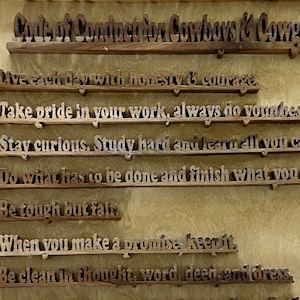 Code of Conduct for Cowboys & Cowg
Live each day with honesty & courage.
Take pride in your work, always do your bes
Stay curious. Study hard and learn all you c
Do what has to be done and finish what you
Be tough but fair.
When you make a promise, keep it.
Be clean in thought, word, deed, and dress.